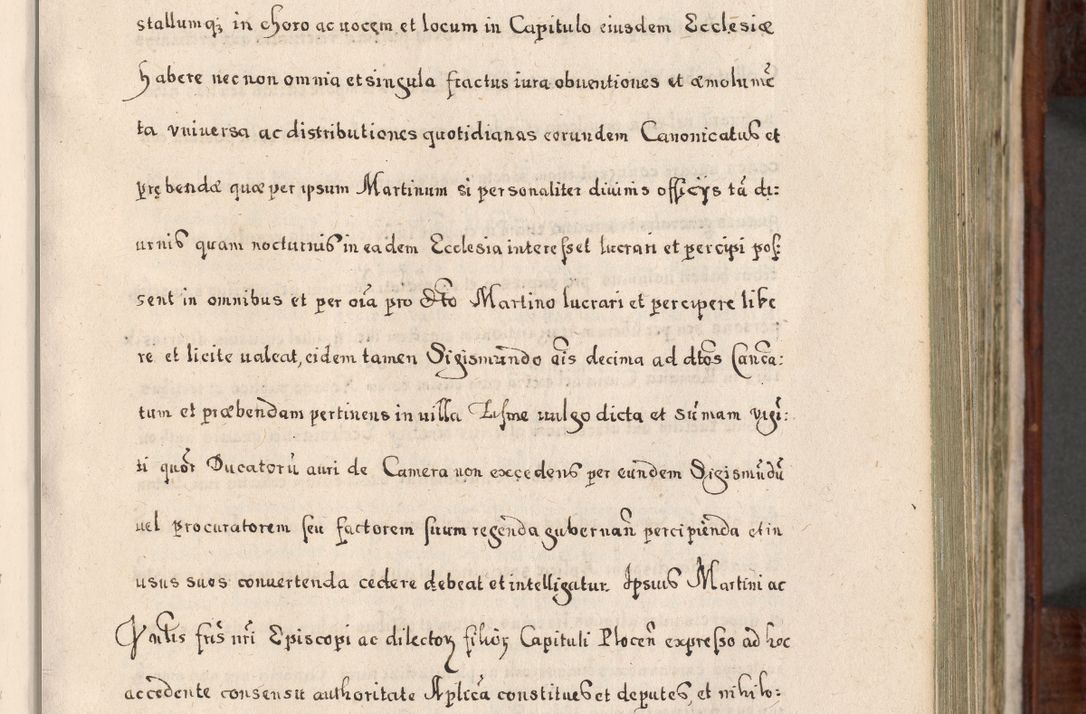 stallumq; in choro ac uocem et locum in Capitulo eiusdem Ecclesiæ
habere nec non omnia et singula fractus iura obuentiones et æmolumē
ta vniuersa ac distributiones quotidianas eorundem Canonicatus et
prębendæ quæ per ipsum Martinum si personaliter diuinis officÿs tā di:
urnis quam nocturnis in eadem Ecclesia interesset lucrari et percipi pos:
sent in omnibus et per oīa pro dcto Martino lucrari et percipere libe
re et licite ualeat, eidem tamen Sigismundo q̄is decima ad dtos Canca:
tum et præbendam pertinens in uilla vulgo dicta et sūmam vigi:
ti quōr Ducatorū auri de Camera non excedens per eundem Sigismūdū
uel procuratorem seu factorem suum regenda gubernan̄ percipienda et in
usus suos conuertenda cedere debeat et intelligatur. Ipsius Martini ac
frīs nrī Episcopi ac dilectoꝝ filioꝝ Capituli Plocen̄ expresso ad hoc
accedente consensu authoritate Aplica constitues et deputes, et nihilo: